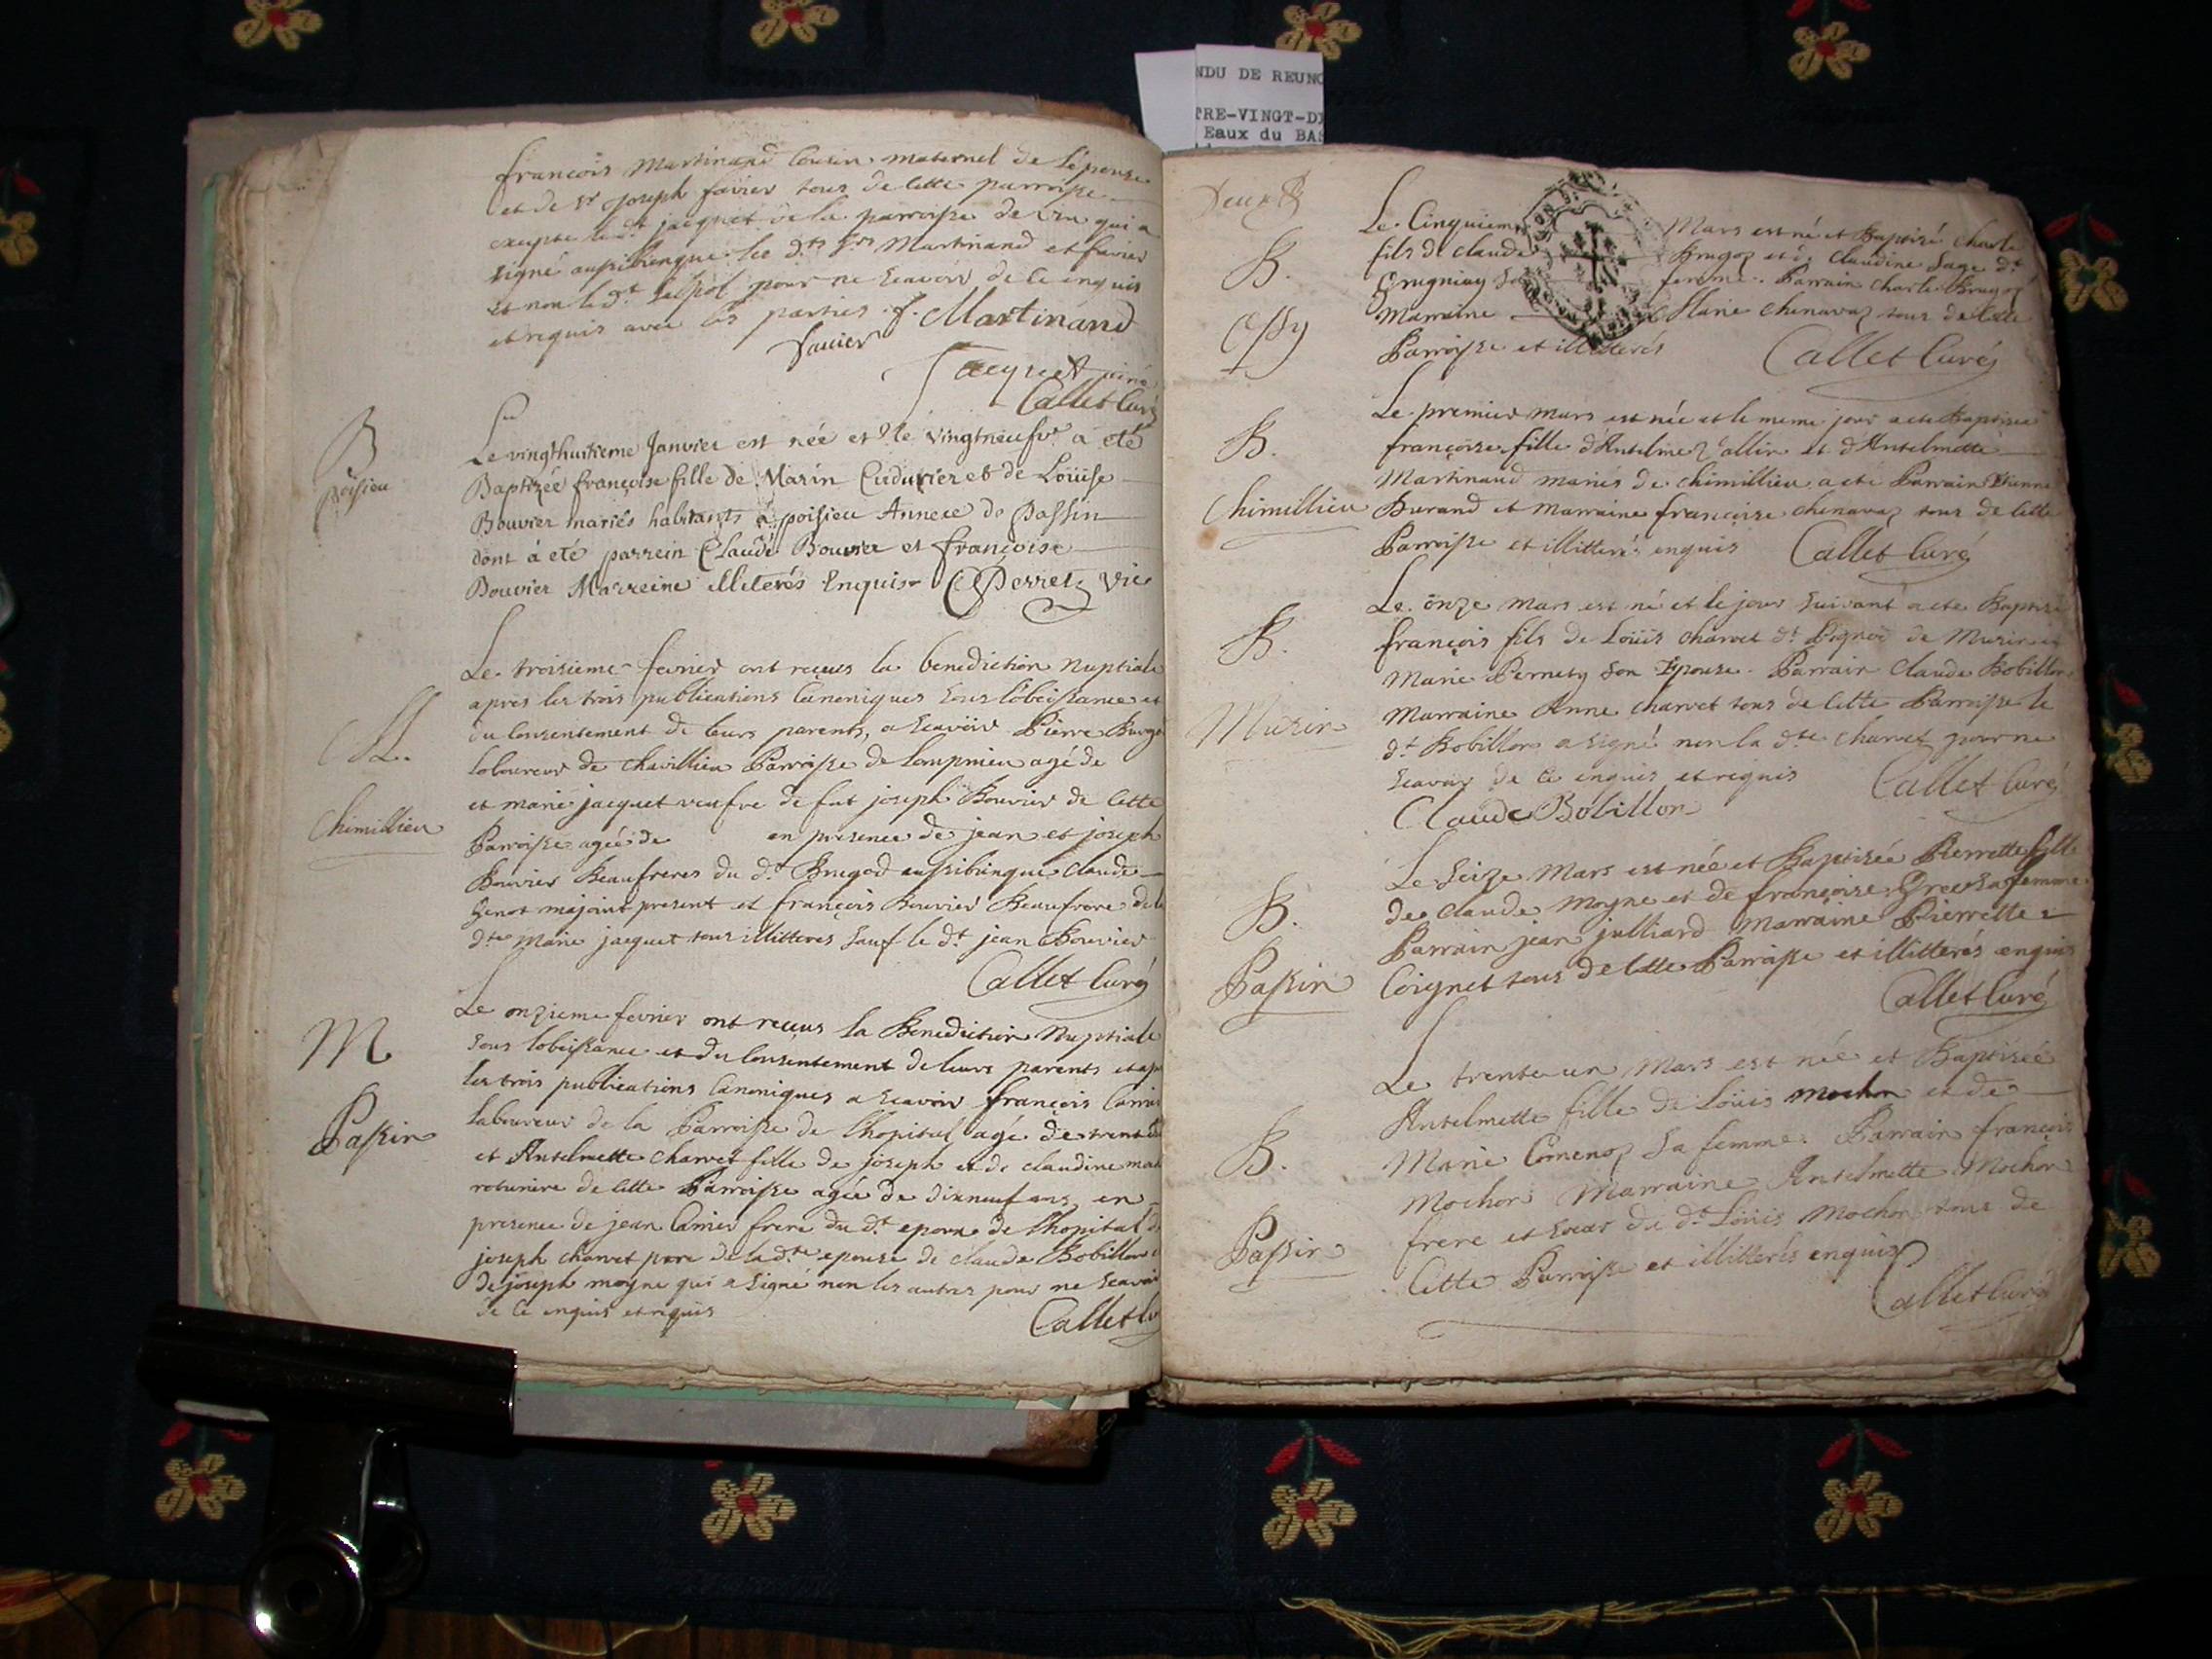 NDU DE REUNO
TRE-VINGT-DI
Eaux du BAS
françois Martinand Cousin maternel de l'epouse
et de Sr joseph favier tous de cette parroisse
excepte le dt jacquet de la parroisse de qui a
signé aussi bien que les dts Srs Martinand et favier
et non le dt pour ne scavoir de ce enquis
et requis avec les parties f. Martinand
favier
Jacquet
Callet Curé
B
poisieu
Le vingthuitieme Janvier est née et le vingtneufve a eté
Baptizée françoise fille de Marin Cuduvier et de Loüise
Bouvier mariés habitants a poisieu Annexe de Passin
dont à eté parrein Claude Bouvier et françoise
Bouvier Marreine illiterés Enquis Perret vic
M.
Chimillieu
Le troisieme fevrier ont reçus la benediction Nuptiale
apres les trois publications Canoniques sous l'obeissance et
du consentement de leurs parents, a scavoir Pierre
laboureur de chavillieu Parroisse de Lompnieu agé de
et marie jacquet veufve de fut joseph Bouvier de cette
Parroisse agée de en presence de jean et joseph
Bouvier Beaufreres du dt Brugod aussibienque claude
Genot majoint present et françois Bouvier Beaufrere de la
dte Marie jacquet tous illitteres sauf le dt jean Bouvier
Callet Curé
M
Passin
Le onzieme fevrier ont reçus la Benediction Nuptiale
sous lobeissance et du consentement de leurs parents et
les trois publications Canoniques a scavoir françois
laboureur de la Parroisse de lhopital agé de
et Antelmette charvet fille de joseph et de claudine
de cette Parroisse agée de dixneuf ans en
presence de jean frere du dt epoux de lhopital
joseph charvet pere de la dte epouse de claude Bobillon
de joseph moyne qui a signé non les autres pour ne scavoir
de ce enquis et requis
Callet
Deux
B.
Le Cinquieme Mars est né et Baptisé charle
fils de claude Brugoz et de Claudine Sage dt
femme. Parrain charle Brugoz
Marraine Marie chenavaz tous de cette
Parroisse et illitterés Callet Curé
B.
Chimillieu
Le premier mars est née et le meme jour a ete Baptisée
françoise fille d'Antelme et d'Antelmette
Martinand mariés de chimillieu a ete Parrain Etienne
Durand et Marraine françoise chenavaz tous de cette
Parroisse et illitterés enquis Callet Curé
B.
Musin
Le onze mars est né et le jour suivant a ete Baptisé
françois fils de Loüis charvet dt de Musin et
Marie Pernety son Epouse. Parrain Claude Bobillon
Marraine Anne charvet tous de cette Parroisse le
dt Bobillon a signé non la dte charvet pour ne
scavoir de ce enquis et requis Callet Curé
Claude Bobillon
B.
Passin
Le Seize Mars est née et Baptisée Pierrette fille
de claude Moyne et de françoise sa femme
Parrain jean julliard Marraine Pierrette
Coignet tous de cette Parroisse et illitterés enquis
Callet Curé
B.
Passin
Le trente-un Mars est née et Baptisée
Antelmette fille de Loüis mochon et de
Marie sa femme. Parrain françois
Mochon Marraine Antelmette Mochon
frere et soeur du dt Loüis Mochon tous de
Cette Parroisse et illitterés enquis
Callet Curé